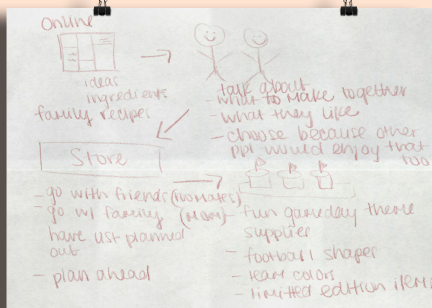 Online
ideas
ingredients
family recipes
talk about
- what to make together
- what they like
- choose because other
ppl would enjoy that
too
Store
- go with friends (roomates)
- go w/ family (mom)
have list planned
out
- plan ahead
- fun gameday theme
supplier
- football shaper
- team colors
- limited edition items